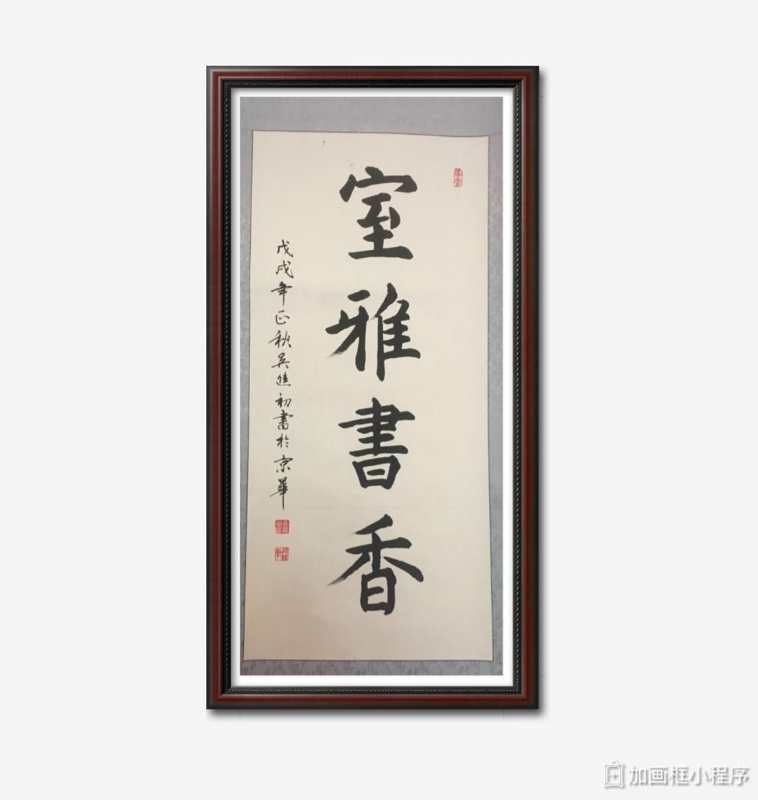 室雅書香
戊戌年正秋吴進初書於京華
加画框小程序